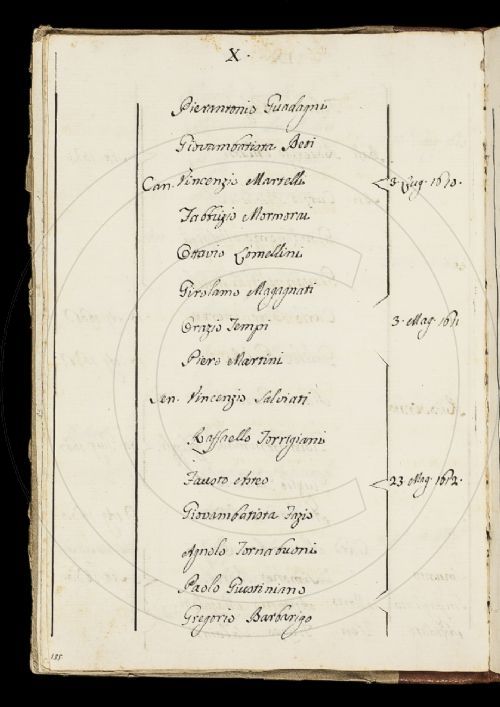 X.
Pierantonio Guadagni
Giovambatista Deti
Can. Vincenzio Martelli 3 Lug. 1610.
Fabrizio Mormorai
Ottavio Lomellini
Girolamo Magagnati
Orazio Tempi 3. Mag. 1611
Piero Martini
Sen. Vincenzio Salviati
Raffaello Torrigiani
Fausto 23 Mag. 1612.
Giovambatista Fazio
Agnolo Tornabuoni
Paolo Giustiniano
Gregorio Barbarigo